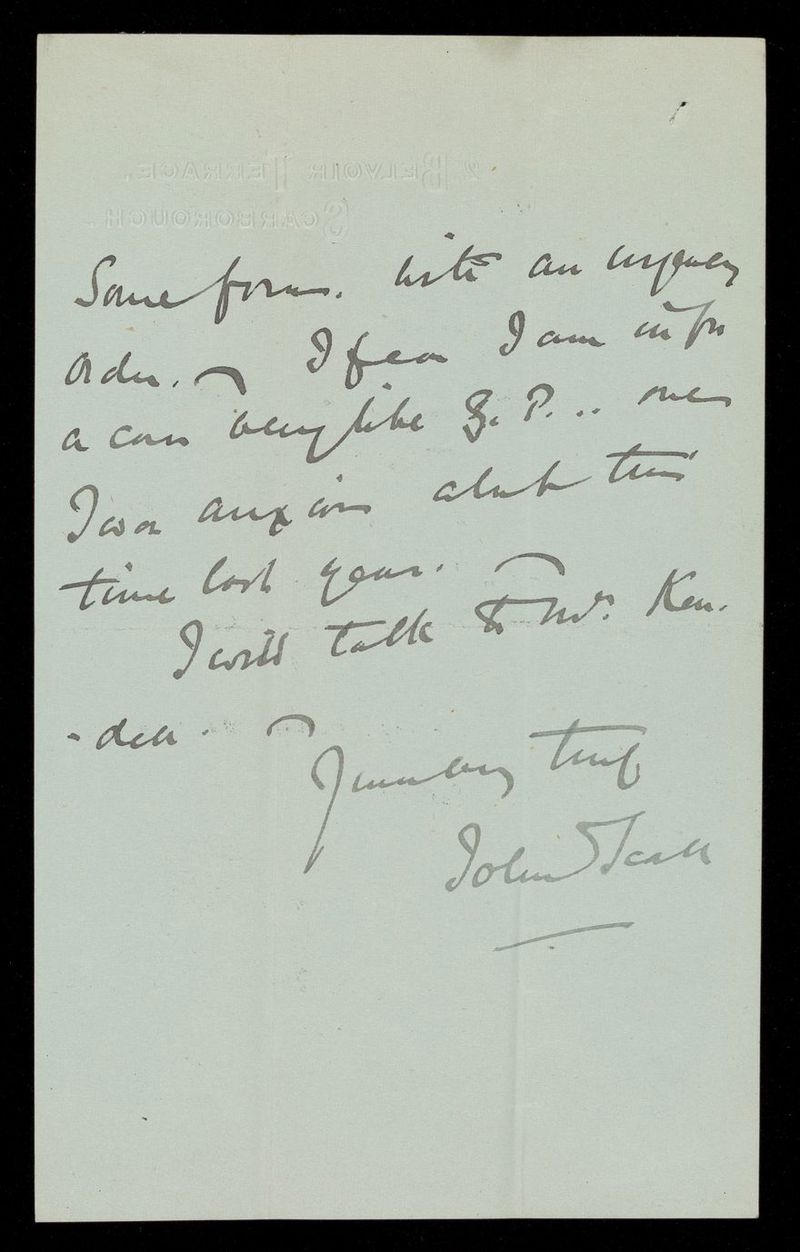 2 BELVOIR TERRACE.
SCARBOROUGH.
Some forms. with an urgency
Order. I fear I am in for
a case very like G. P. .. ones
I was anxious about this
time last year.
I will talk to Mr. Ken.
- dell.
Yours very truly
John